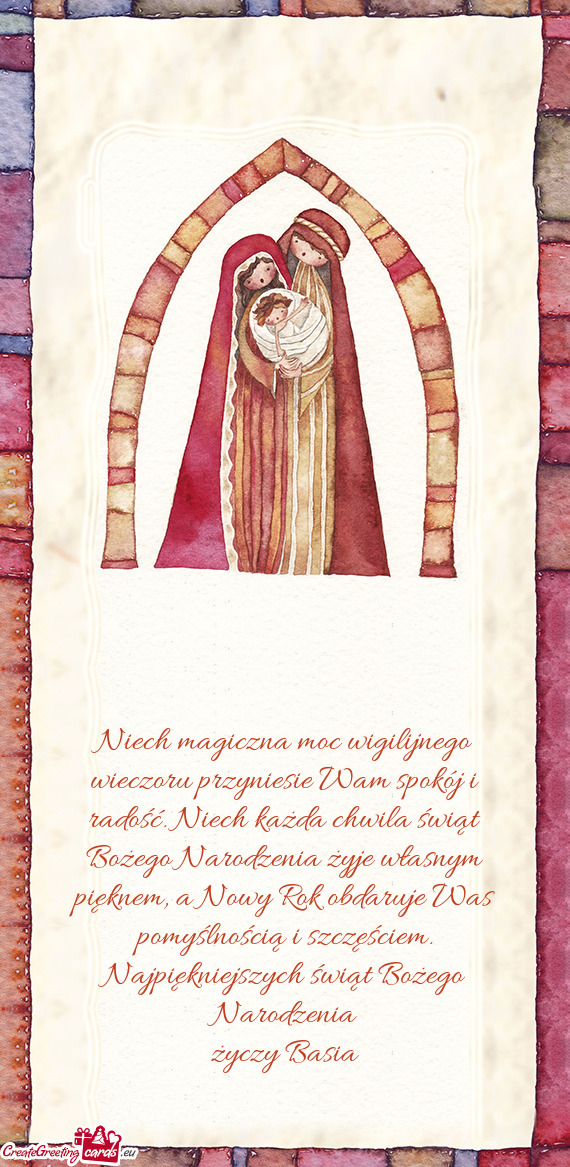 Niech magiczna moc wigilijnego
wieczoru przyniesie Wam spokój i
radość. Niech każda chwila świąt
Bożego Narodzenia żyje własnym
pięknem, a Nowy Rok obdaruje Was
pomyślnością i szczęściem.
Najpiękniejszych świąt Bożego
Narodzenia
życzy Basia
CreateGreeting cards .eu